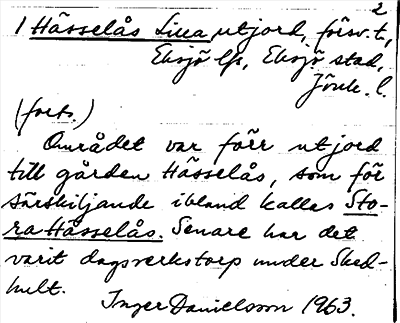 2
1 Hässelås Lilla utjord, försv. t,
Eksjö lfs, Eksjö stad,
Jönk. l.
(forts.)
Området var förr utjord
till gården Hässelås, som för
särskiljande ibland kallas Sto-
ra Hässelås. Senare har det
varit dagsverkstorp under Sked-
hult.
Inger Danielsson 1963.